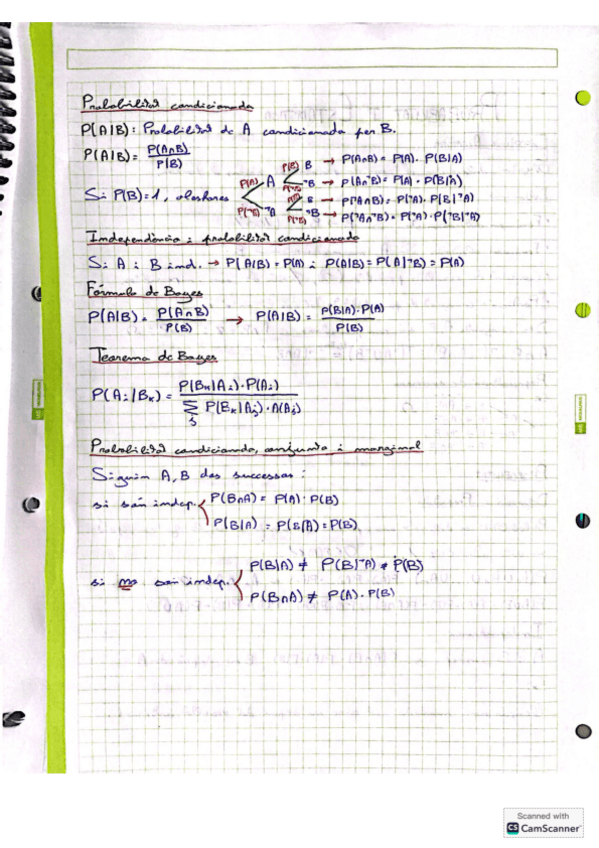 Probabilitat condicionada
P(A|B): Probabilitat de A condicionada per B.
P(A|B) = P(A∩B) / P(B)
Si P(B)=1, aleshores
P(A) A P(B) B → P(A∩B) = P(A) · P(B|A)
P(¬B) ¬B → P(A∩¬B) = P(A) · P(¬B|A)
B → P(¬A∩B) = P(¬A) · P(B|¬A)
P(¬A) ¬A P(¬B) ¬B → P(¬A∩¬B) = P(¬A) · P(¬B|¬A)
Independència i probabilitat condicionada
Si A i B ind. → P(A|B) = P(A) i P(A|B) = P(A|¬B) = P(A)
Fórmula de Bayes
P(A|B) = P(A∩B) / P(B) → P(A|B) = P(B|A)·P(A) / P(B)
Teorema de Bayes
P(Ai|Bk) = P(Bk|Ai)·P(Ai) / Σj P(Bk|Aj)·A(Aj)
Probabilitat condicionada, conjunta i marginal
Siguin A, B dos successos:
si són indep. P(B∩A) = P(A) · P(B)
P(B|A) = P(B|¬A) = P(B)
si no són indep. P(B|A) ≠ P(B|¬A) ≠ P(B)
P(B∩A) ≠ P(A) · P(B)
Scanned with
CS CamScanner